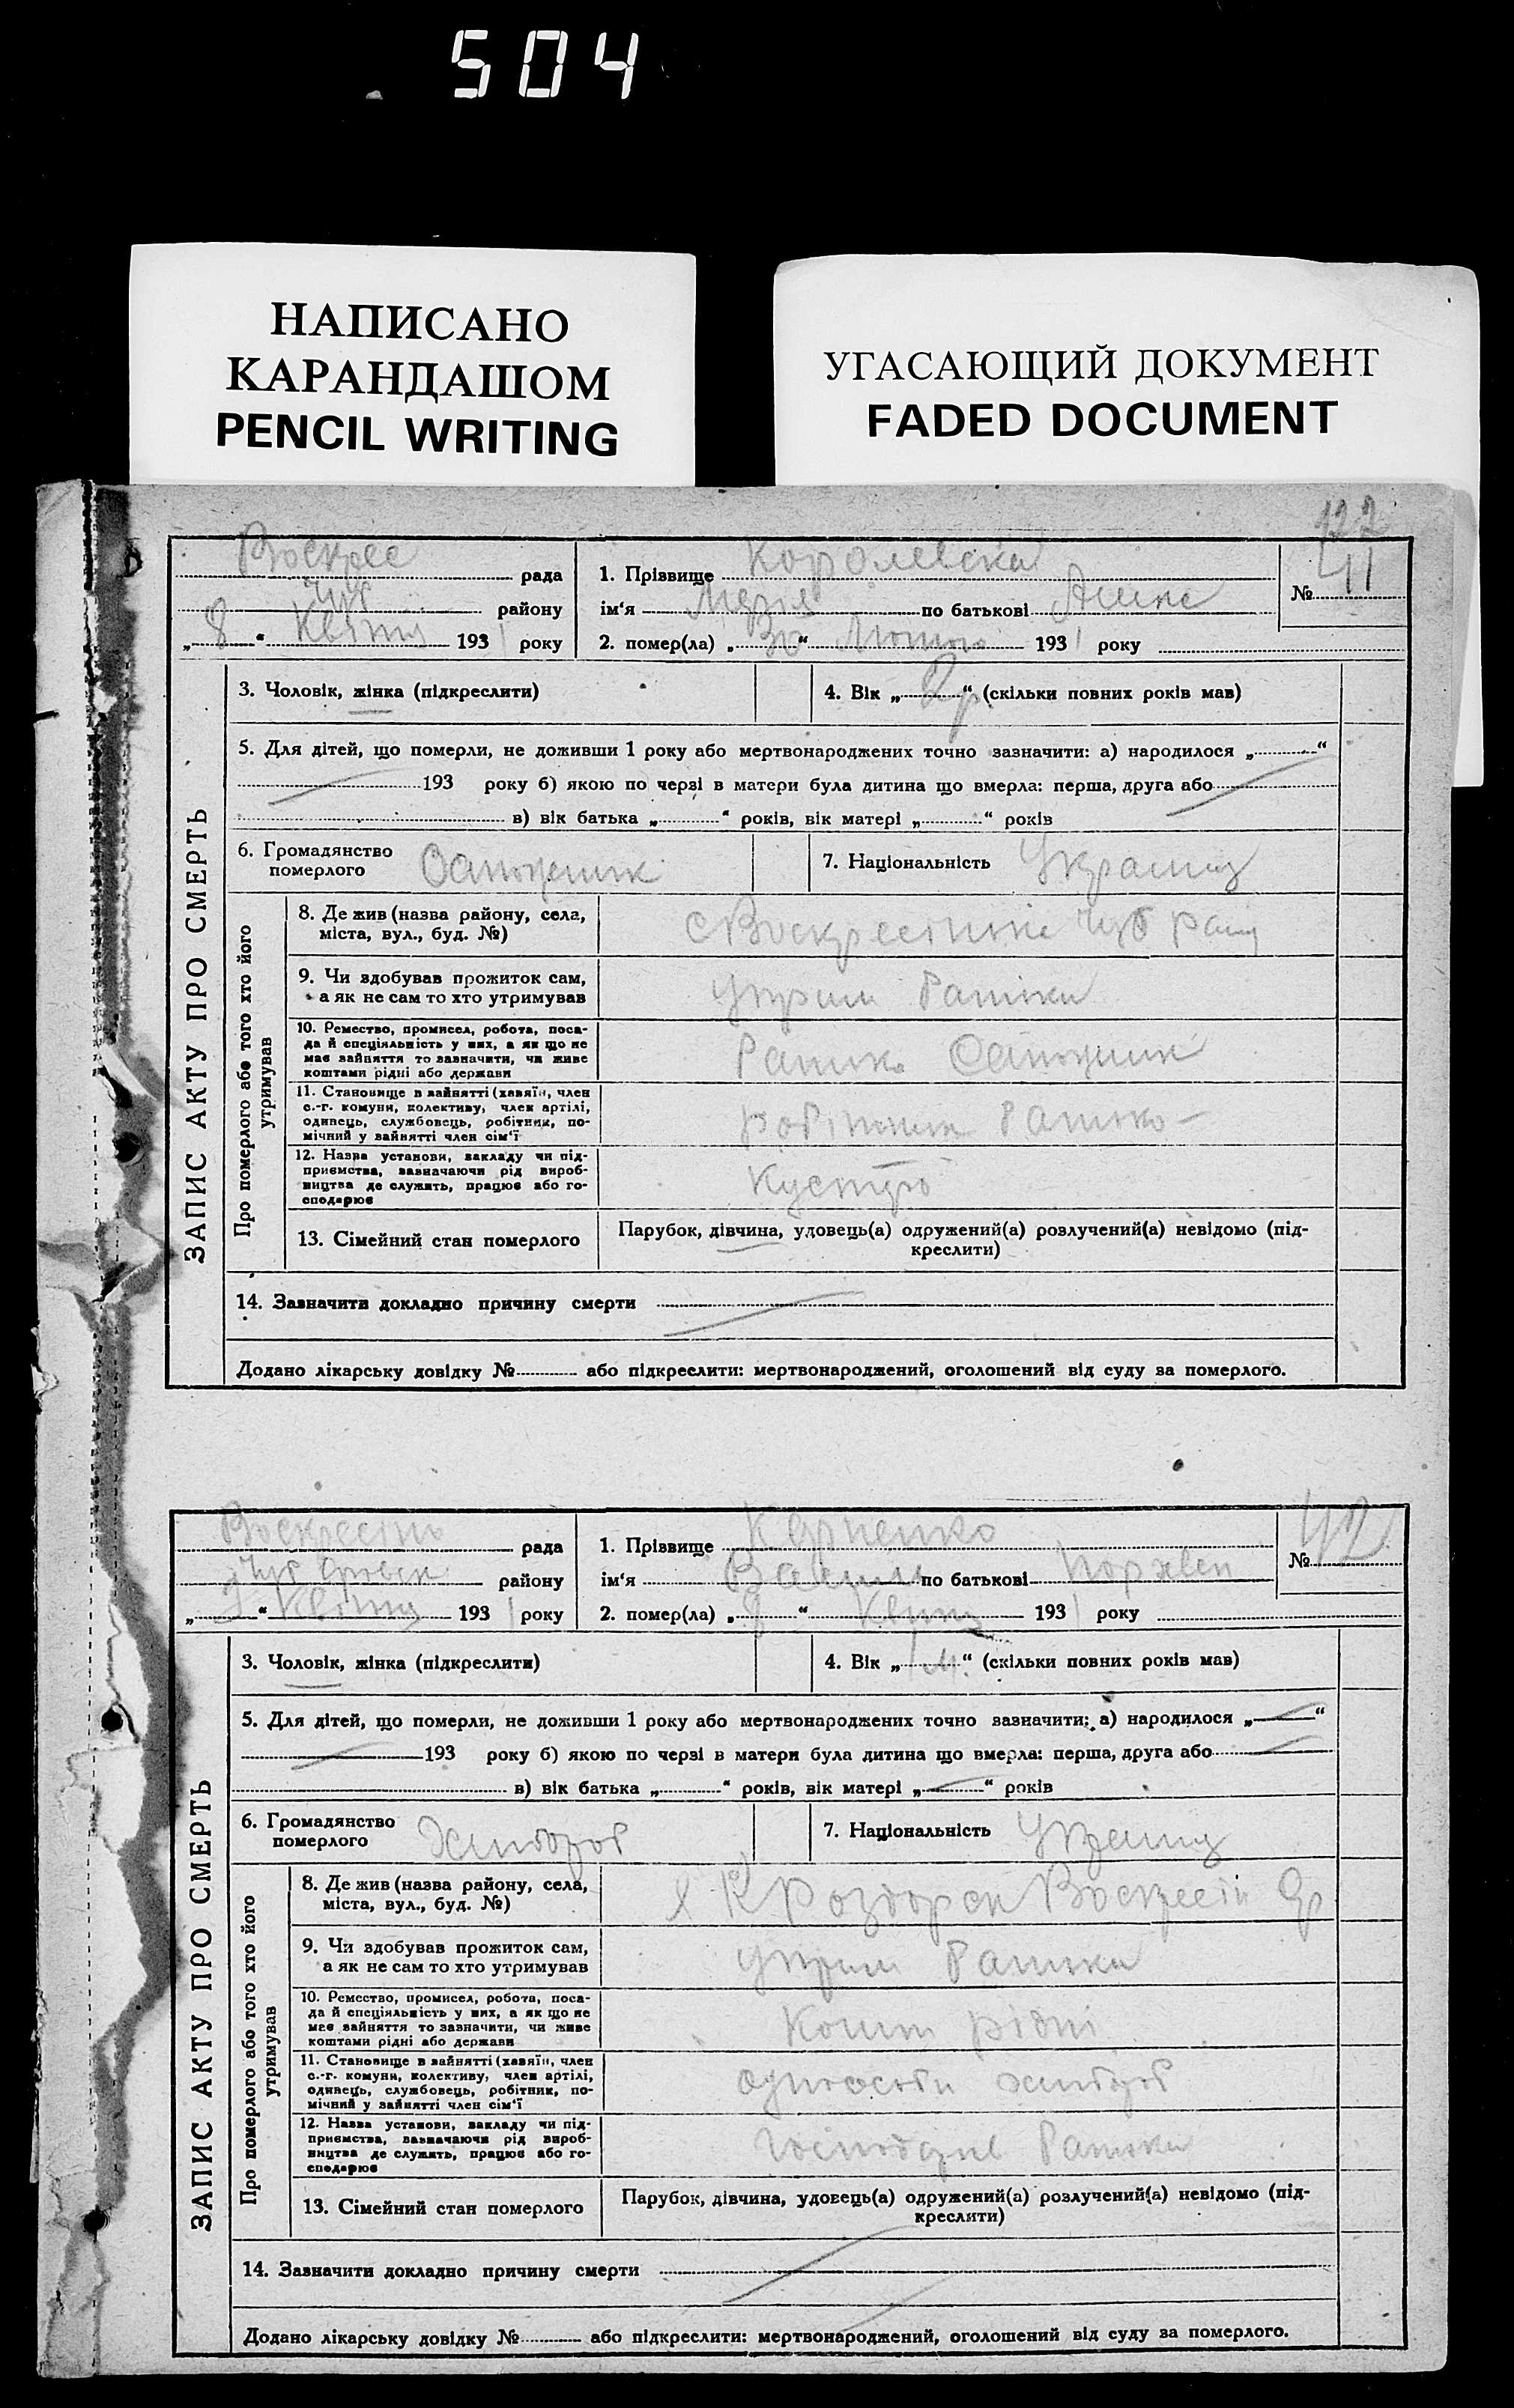 504
НАПИСАНО
КАРАНДАШОМ
PENCIL WRITING
УГАСАЮЩИЙ ДОКУМЕНТ
FADED DOCUMENT
127
Воскрес рада
Чуб району
„ 8 “ Квітня 1931 року
1. Прізвище Королевска
ім'я Марія по батькові
№ 41
2. помер(ла) „ “ Лютого 1931 року
ЗАПИС АКТУ ПРО СМЕРТЬ
3. Чоловік, жінка (підкреслити)
4. Вік „ “ (скільки повних років мав)
5. Для дітей, що померли, не доживши 1 року або мертвонароджених точно зазначити: а) народилося „ “
193 року б) якою по черзі в матери була дитина що вмерла: перша, друга або
в) вік батька „ “ років, вік матері „ “ років
6. Громадянство
померлого
7. Національність Украінц
Про померлого або того хто його
утримував
8. Де жив (назва району, села,
міста, вул., буд. №)
9. Чи здобував прожиток сам,
а як не сам то хто утримував
Утрим Батьки
10. Ремество, промисел, робота, поса-
да й спеціяльність у них, а як що не
має зайняття то зазначити, чи живе
коштами рідні або держави
Батько
11. Становище в зайнятті (хазяїн, член
с.-г. комуни, колективу, член артілі,
одинець, службовець, робітник, по-
мічний у зайнятті член сім'ї
робітник Батько
12. Назва установи, закладу чи під-
приємства, зазначаючи рід вироб-
ництва де служить, працює або го-
сподарює
13. Сімейний стан померлого
Парубок, дівчина, удовець(а) одружений(а) розлучений(а) невідомо (під-
креслити)
14. Зазначити докладно причину смерти
Додано лікарську довідку № або підкреслити: мертвонароджений, оголошений від суду за померлого.
Воскресінс рада
району
„ “ Квітня 1931 року
1. Прізвище Карпенко
ім'я Василь по батькові
№ 42
2. помер(ла) „ “ Квітц 1931 року
ЗАПИС АКТУ ПРО СМЕРТЬ
3. Чоловік, жінка (підкреслити)
4. Вік „ “ (скільки повних років мав)
5. Для дітей, що померли, не доживши 1 року або мертвонароджених точно зазначити: а) народилося „ “
193 року б) якою по черзі в матери була дитина що вмерла: перша, друга або
в) вік батька „ “ років, вік матері „ “ років
6. Громадянство
померлого
Хлибороб
7. Національність Украінц
Про померлого або того хто його
утримував
8. Де жив (назва району, села,
міста, вул., буд. №)
9. Чи здобував прожиток сам,
а як не сам то хто утримував
Утрим Батьки
10. Ремество, промисел, робота, поса-
да й спеціяльність у них, а як що не
має зайняття то зазначити, чи живе
коштами рідні або держави
Кошт рідні
11. Становище в зайнятті (хазяїн, член
с.-г. комуни, колективу, член артілі,
одинець, службовець, робітник, по-
мічний у зайнятті член сім'ї
12. Назва установи, закладу чи під-
приємства, зазначаючи рід вироб-
ництва де служить, працює або го-
сподарює
Батьки
13. Сімейний стан померлого
Парубок, дівчина, удовець(а) одружений(а) розлучений(а) невідомо (під-
креслити)
14. Зазначити докладно причину смерти
Додано лікарську довідку № або підкреслити: мертвонароджений, оголошений від суду за померлого.